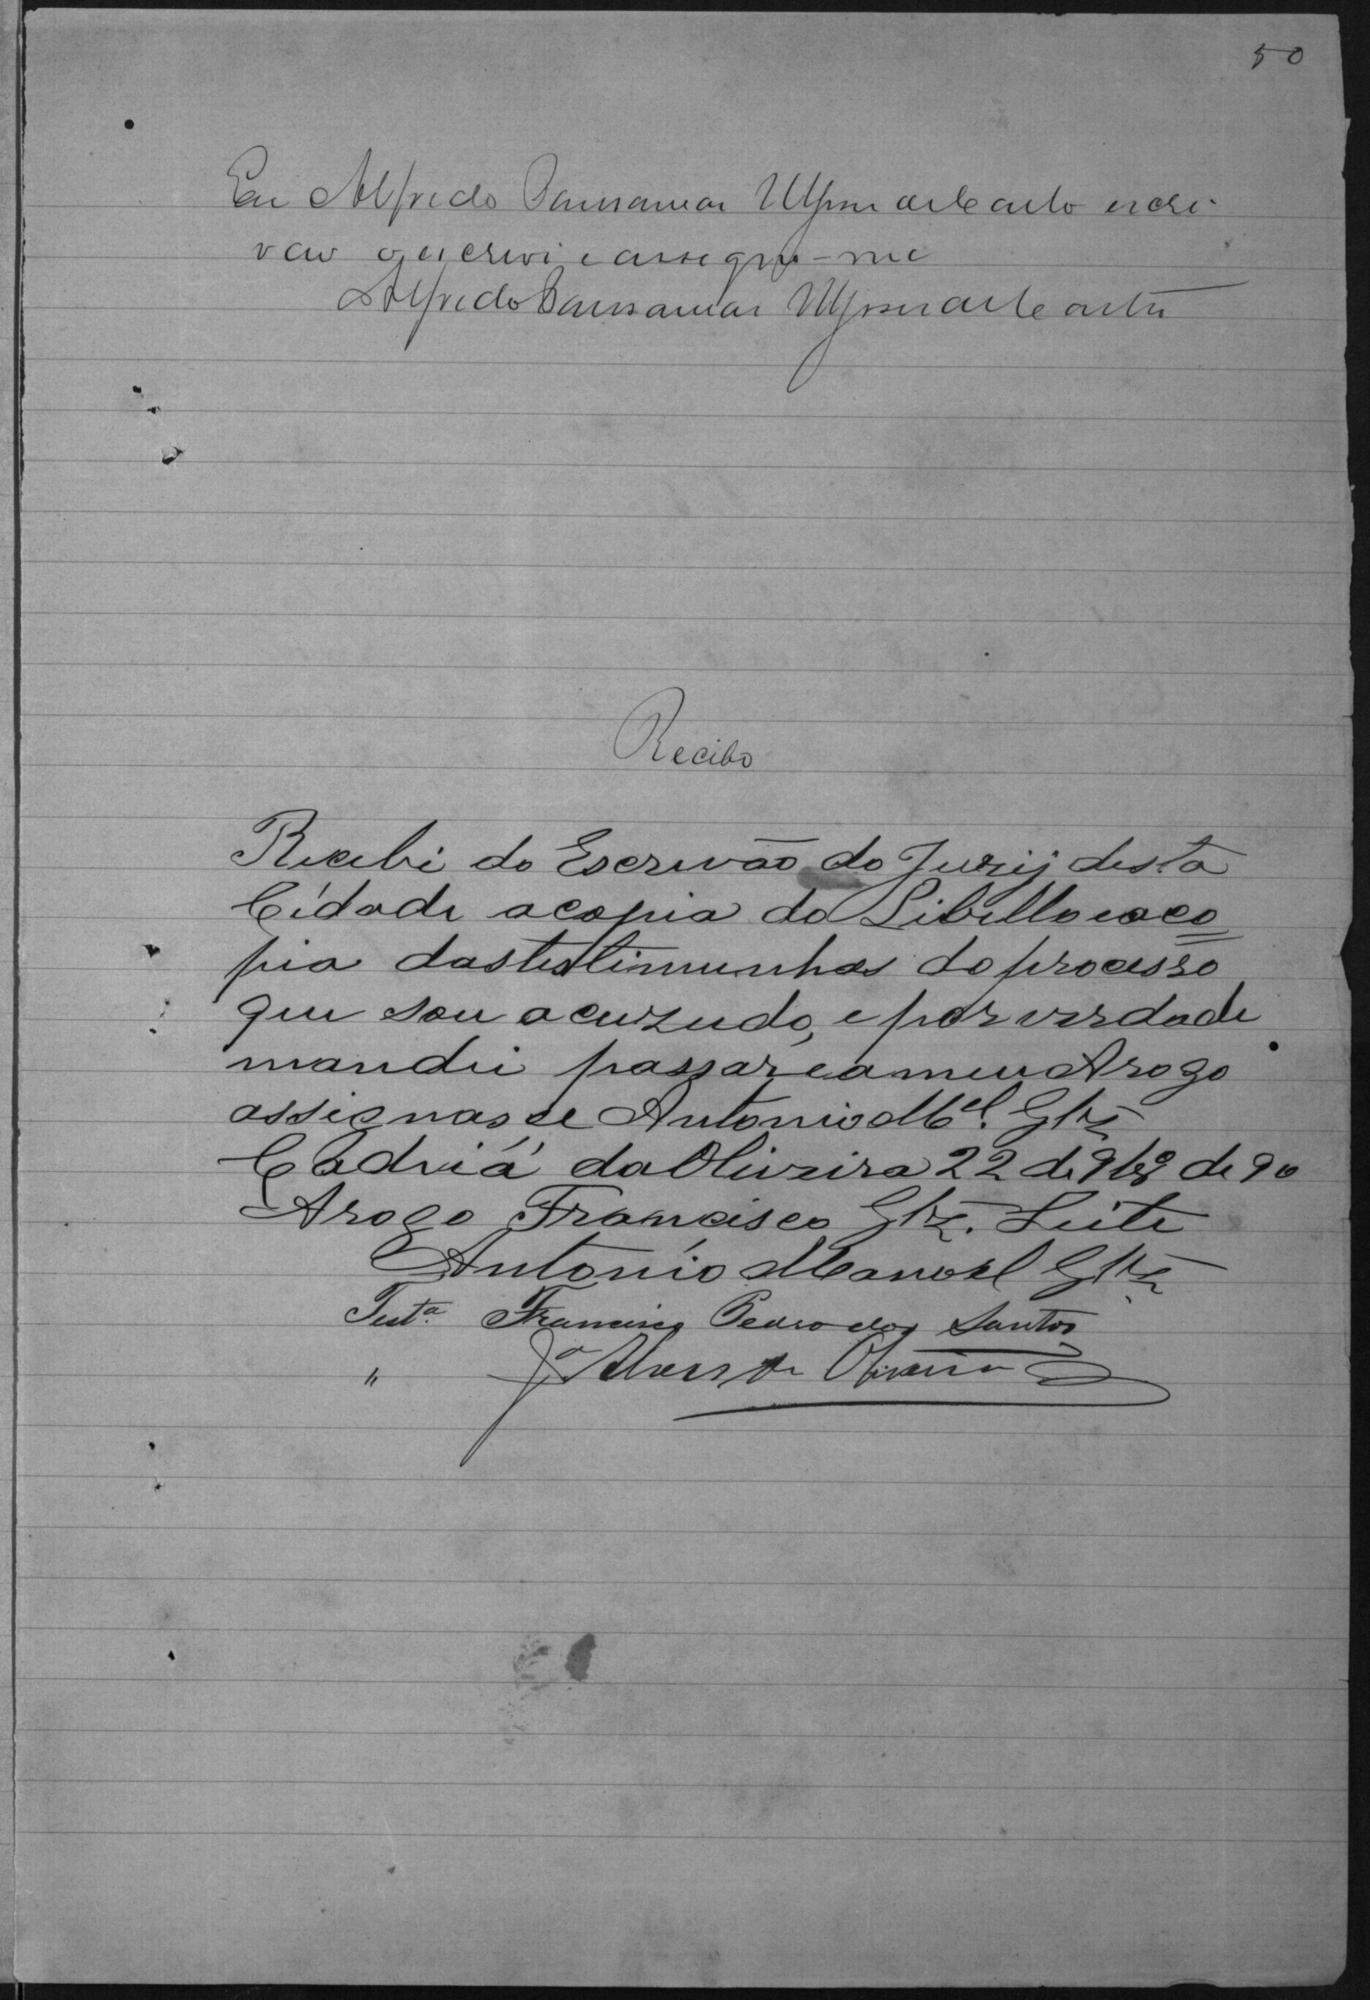 50
Eu Alfredo
vão o escrevi e assigno-me
Alfredo
Recibo
Recebi do Escrivão do Jurij desta
Cídade a copia do Libello e a co
pia das testimunhas do processo
que sou acuzudo, e por verdade
mandei passar e a meu Arogo
assignasse Antonio Mel. Glz
da Oliveira 22 de 9bro de 90
Arogo Francisco Glz. Leite
Antonio Manoel Glz
Testa. Francisco Pedro dos Santos
" Jo Alves de Oliveira